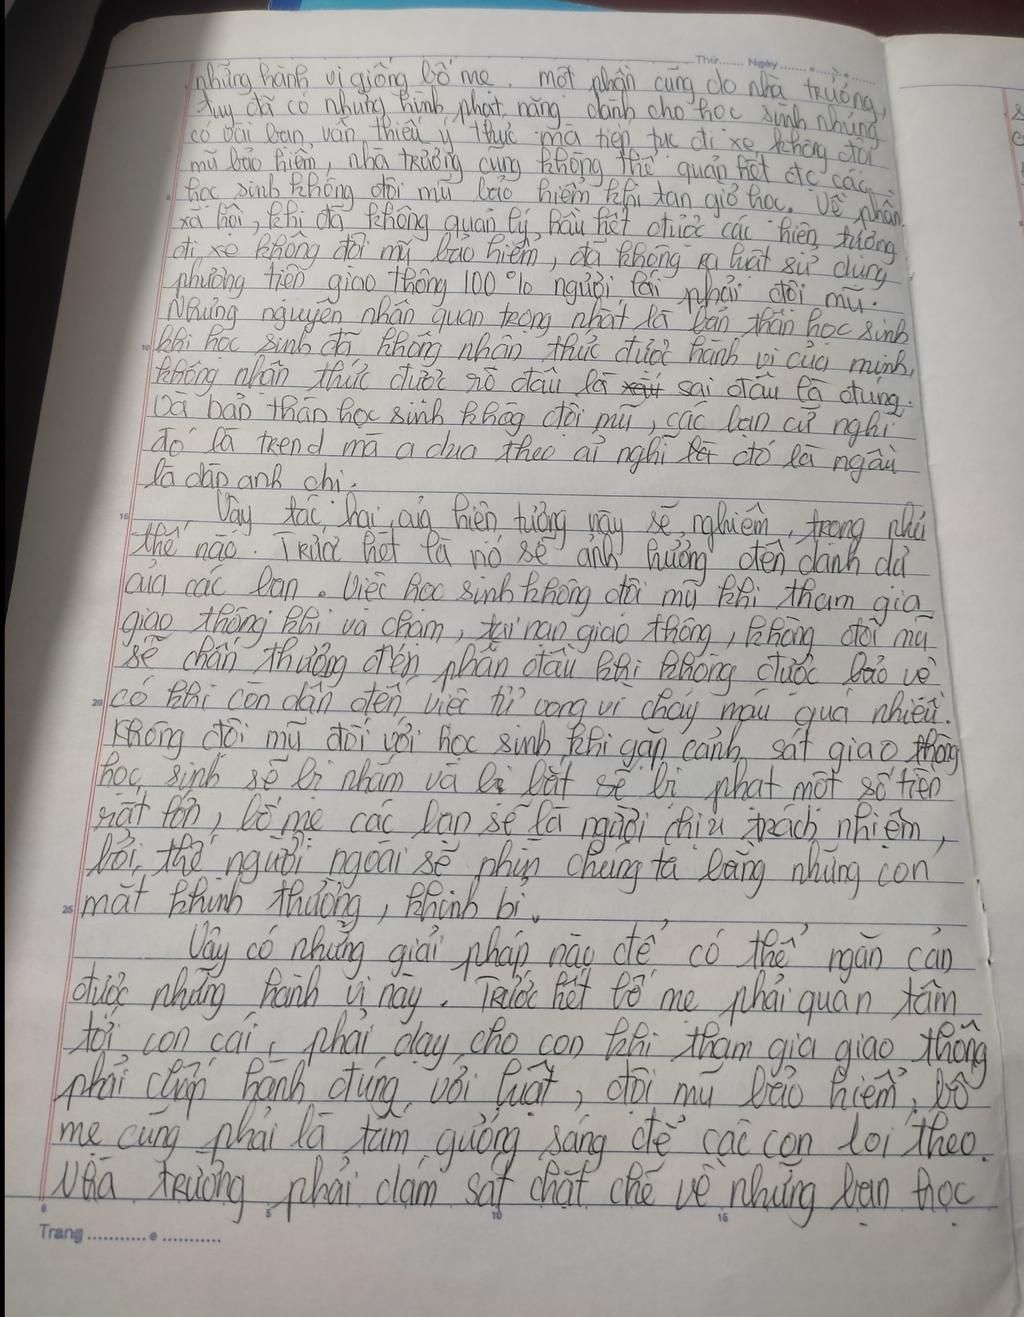 Thứ....... Ngày.......
những hành vi giống bố mẹ. một phần cũng do nhà trường,
tuy đã có những hình phạt nặng dành cho học sinh nhưng
có vài bạn vẫn thiếu ý thức mà tiếp tục đi xe không đội
mũ bảo hiểm, nhà trường cũng không thể quản hết đc các
học sinh không đội mũ bảo hiểm khi tan giờ học. Về phần
xã hội, khi đã không quản lý hầu hết được các hiện tượng
đi xe không đội mũ bảo hiểm, đã không ra luật sử dụng
phương tiện giao thông 100% người lái phải đội mũ.
Nhưng nguyên nhân quan trọng nhất là bản thân học sinh
khi học sinh đã không nhận thức được hành vi của mình,
không nhận thức được rõ đâu là sai đâu là đúng.
Và bản thân học sinh khôg đội mũ, các bạn cứ nghĩ
đó là trend mà a dua theo ai nghĩ đó là ngầu
là dân anh chị.
Vậy tác hại của hiện tượng này sẽ nghiêm trọng như
thế nào. Trước hết là nó sẽ ảnh hưởng đến danh dự
của các bạn. Việc học sinh không đội mũ khi tham gia
giao thông khi va chạm, tai nạn giao thông, không đội mũ
sẽ chấn thương đến phần đầu khi không được bảo vệ
có khi còn dẫn đến việc tử vong vì chảy máu quá nhiều.
Không đội mũ đối với học sinh khi gặp cảnh sát giao thông
học sinh sẽ bị nhắm và bị bắt sẽ bị phạt một số tiền
rất lớn, bố mẹ các bạn sẽ là người chịu trách nhiệm,
bởi thế người ngoài sẽ nhìn chúng ta bằng những con
mắt khinh thường, khinh bỉ.
Vậy có những giải pháp nào để có thể ngăn cản
được những hành vi này. Trước hết bố mẹ phải quan tâm
tới con cái, phải dạy cho con khi tham gia giao thông
phải chấp hành đúng với luật, đội mũ bảo hiểm, bố
mẹ cũng phải là tấm gương sáng để các con loi theo.
Nhà trường phải dám sát chặt chẽ về những bạn học
5 10 15 20 25
0 5 10 15
Trang ........... ...........